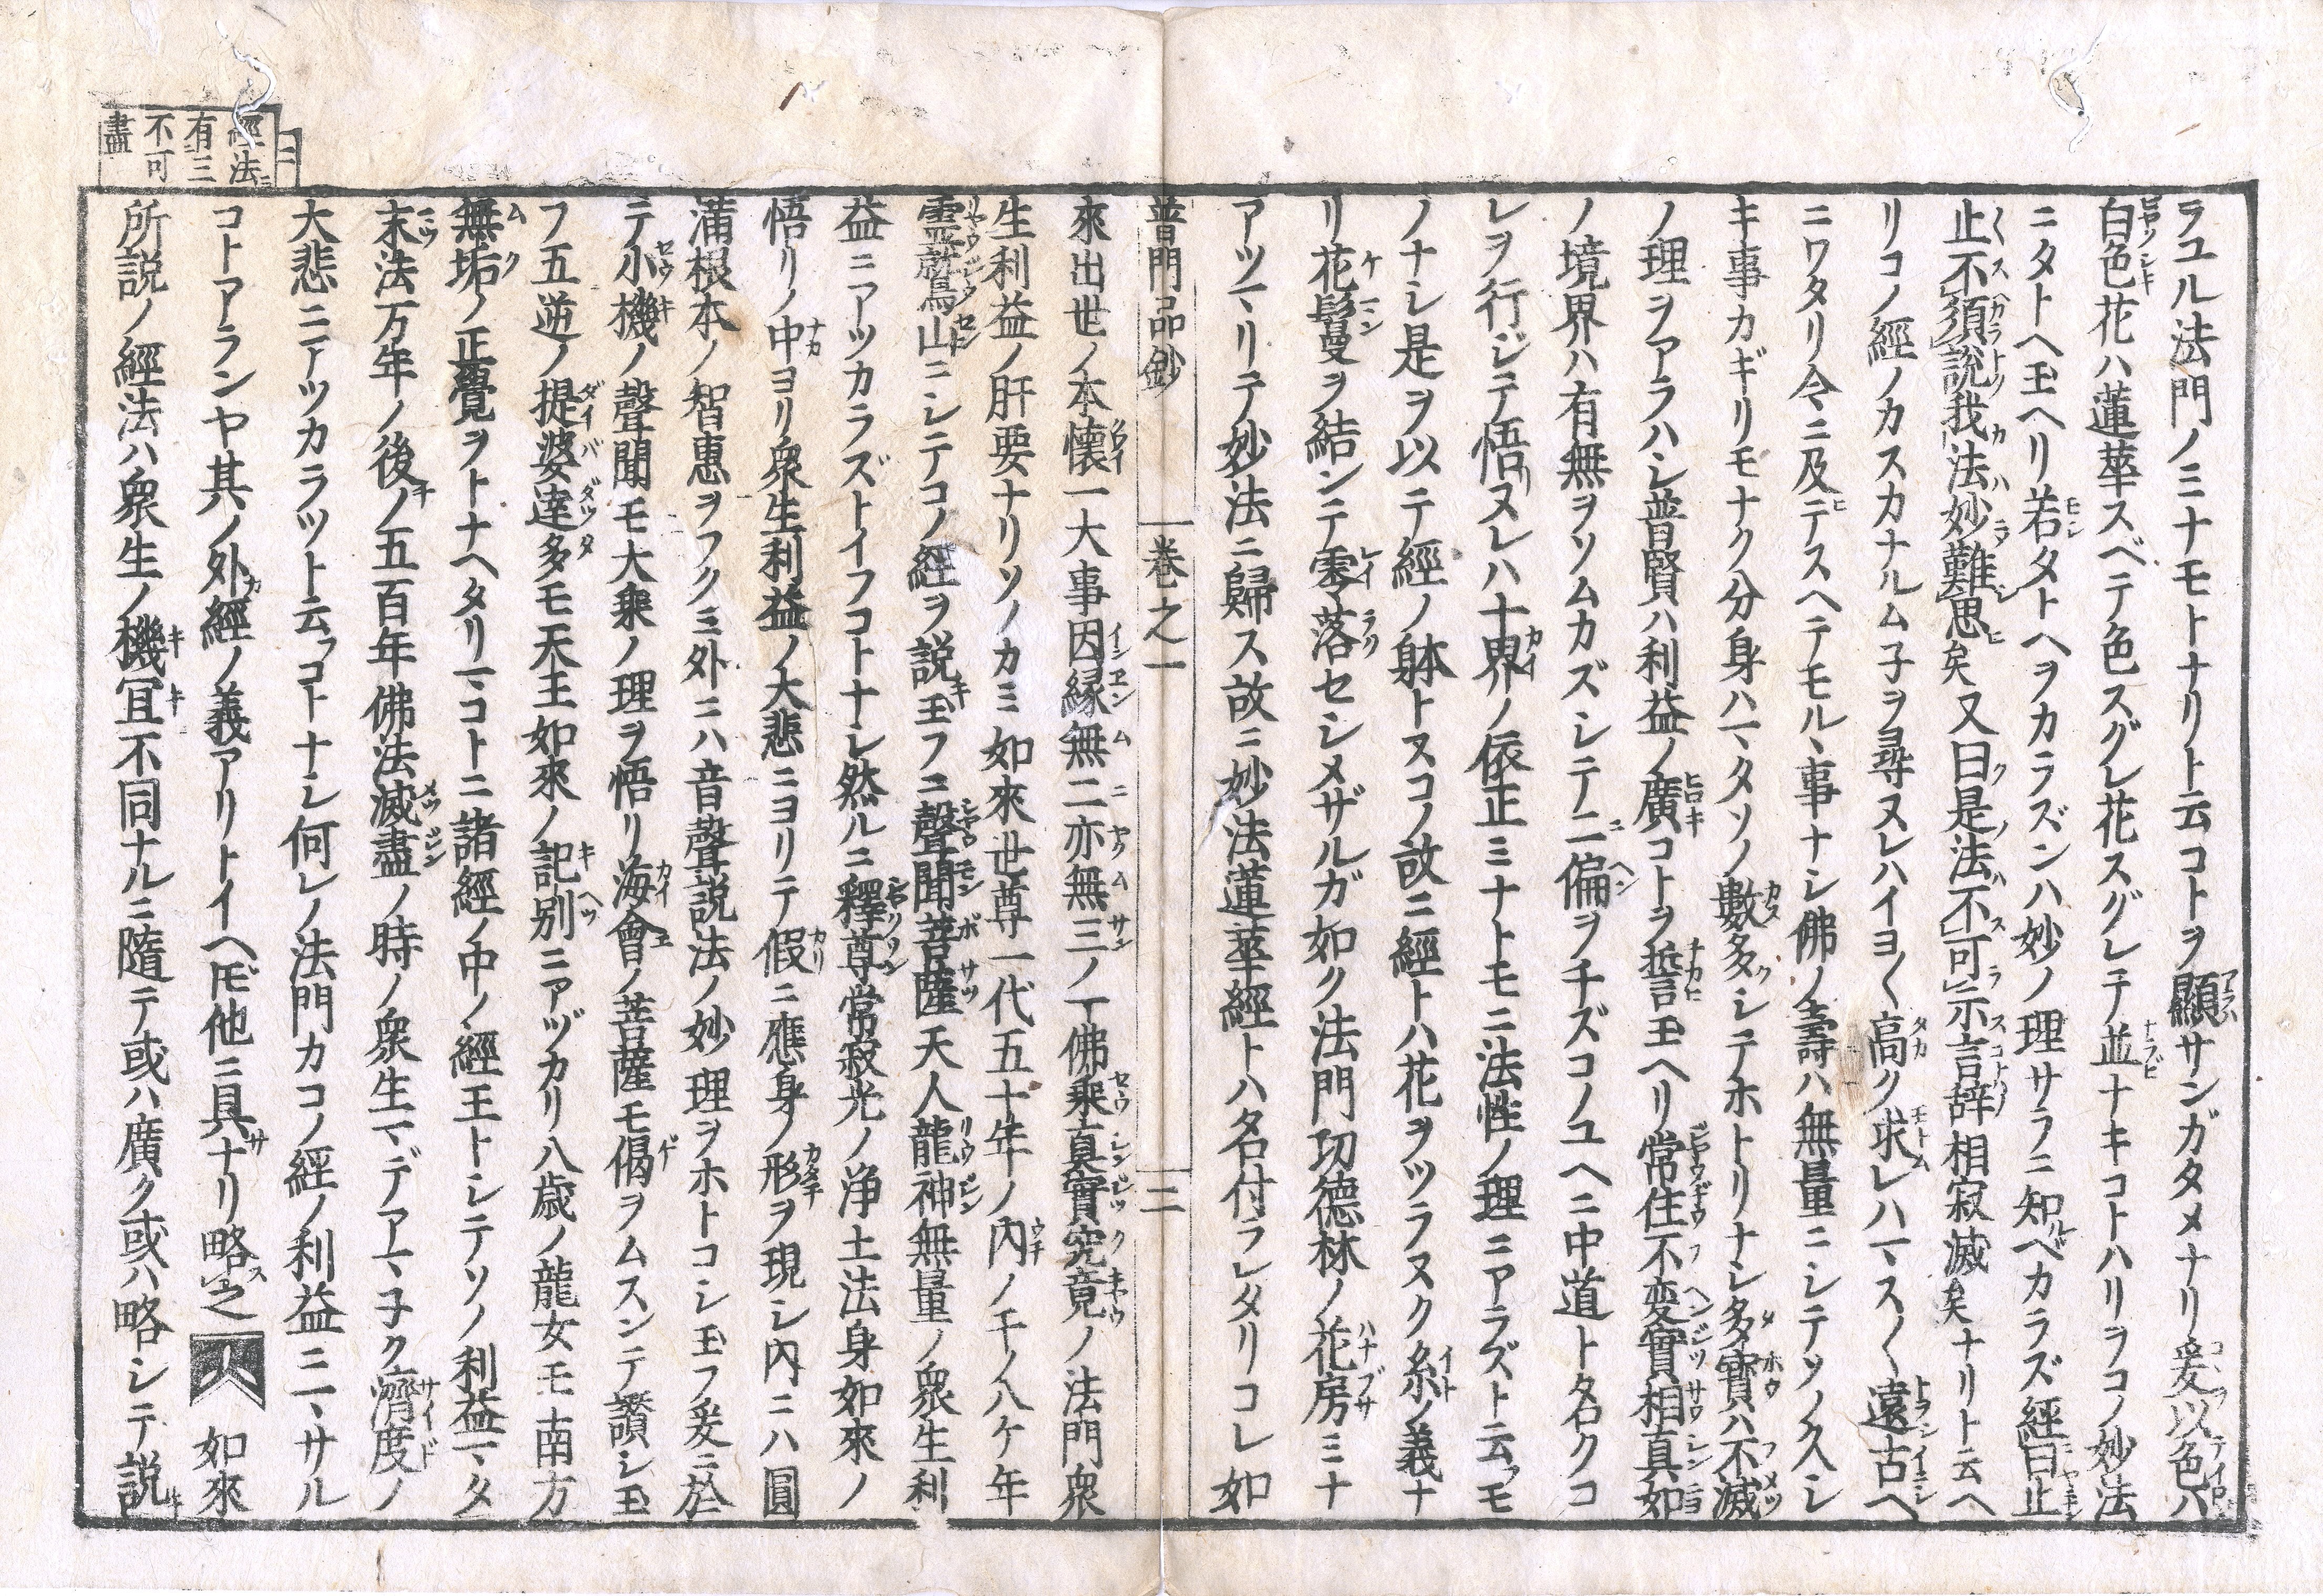 ラユル法門ノミナモトナリト云コトヲ顯サンガタメナリ爰以色ハ
白色花ハ蓮華スベテ色スグレ花スグレテ並ナキコトハリヲコノ妙法
ニタトヘ玉ヘリ若タトヘヲカラズンハ妙ノ理サラニ知ベカラズ經曰止
〱不須説我法妙難思矣又曰是法不可示言辞相寂滅矣ナリト云ヘ
リコノ經ノカスカナルム子ヲ尋ヌレハイヨ〱高ク求レハマス〱遠古ヘ
ニワタリ今ニ及テスヘテモルヽ事ナシ佛ノ壽ハ無量ニシテソノ久シ
キ事カギリモナク分身ハマタソノ數多シテホトリナシ多寳ハ不滅
ノ理ヲアラハシ普賢ハ利益ノ廣コトヲ誓玉ヘリ常住不変實相真如
ノ境界ハ有無ヲソムカズシテ二偏ヲチズコノユヘニ中道ト名クコ
レヲ行ジテ悟ヌレハ十界ノ依正ミナトモニ法性ノ理ニアラズト云フモ
ノナシ是ヲ以テ經ノ躰トスコノ故ニ經トハ花ヲツラヌク糸ノ義ナ
リ花鬘ヲ結ンテ零落セシメザルガ如ク法門功徳林ノ花房ミナ
アツマリテ妙法ニ歸ス故ニ妙法蓮華經トハ名付ラレタリコレ如
普門品鈔 巻之一 三
來出世ノ本懐一大事因縁無二亦無三ノ一佛乘真實究竟ノ法門衆
生利益ノ肝要ナリソノカミ如來世尊一代五十年ノ内ノ千ノ八ケ年
霊鷲山ニシテコノ經ヲ説玉フニ聲聞菩薩天人龍神無量ノ衆生利
益ニアツカラズトイフコトナシ然ルニ釋尊常寂光ノ浄土法身如來ノ
悟リノ中ヨリ衆生利益ノ大悲ニヨリテ假ニ應身ノ形ヲ現シ内ニハ圓
満根本ノ智惠ヲフクミ外ニハ音聲説法ノ妙理ヲホトコシ玉フ爰ニ於
テ小機ノ聲聞モ大乘ノ理ヲ悟リ海會ノ菩薩モ偈ヲムスンテ讃シ玉
フ五逆ノ提婆達多モ天王如來ノ記別ニアヅカリ八歳ノ龍女モ南方
無垢ノ正覺ヲトナヘタリマコトニ諸經ノ中ノ經王トシテソノ利益マタ
末法万年ノ後ノ五百年佛法滅盡ノ時ノ衆生マデアマ子ク濟度ノ
大悲ニアツカラツト云フコトナシ何レノ法門カコノ經ノ利益ニマサル
コトアランヤ其ノ外經ノ義アリトイヘ𪜈他ニ具ナリ略之 如來
二
經法
有三
不可
盡
所説ノ經法ハ衆生ノ機冝不同ナルニ隨テ或ハ廣ク或ハ略シテ説